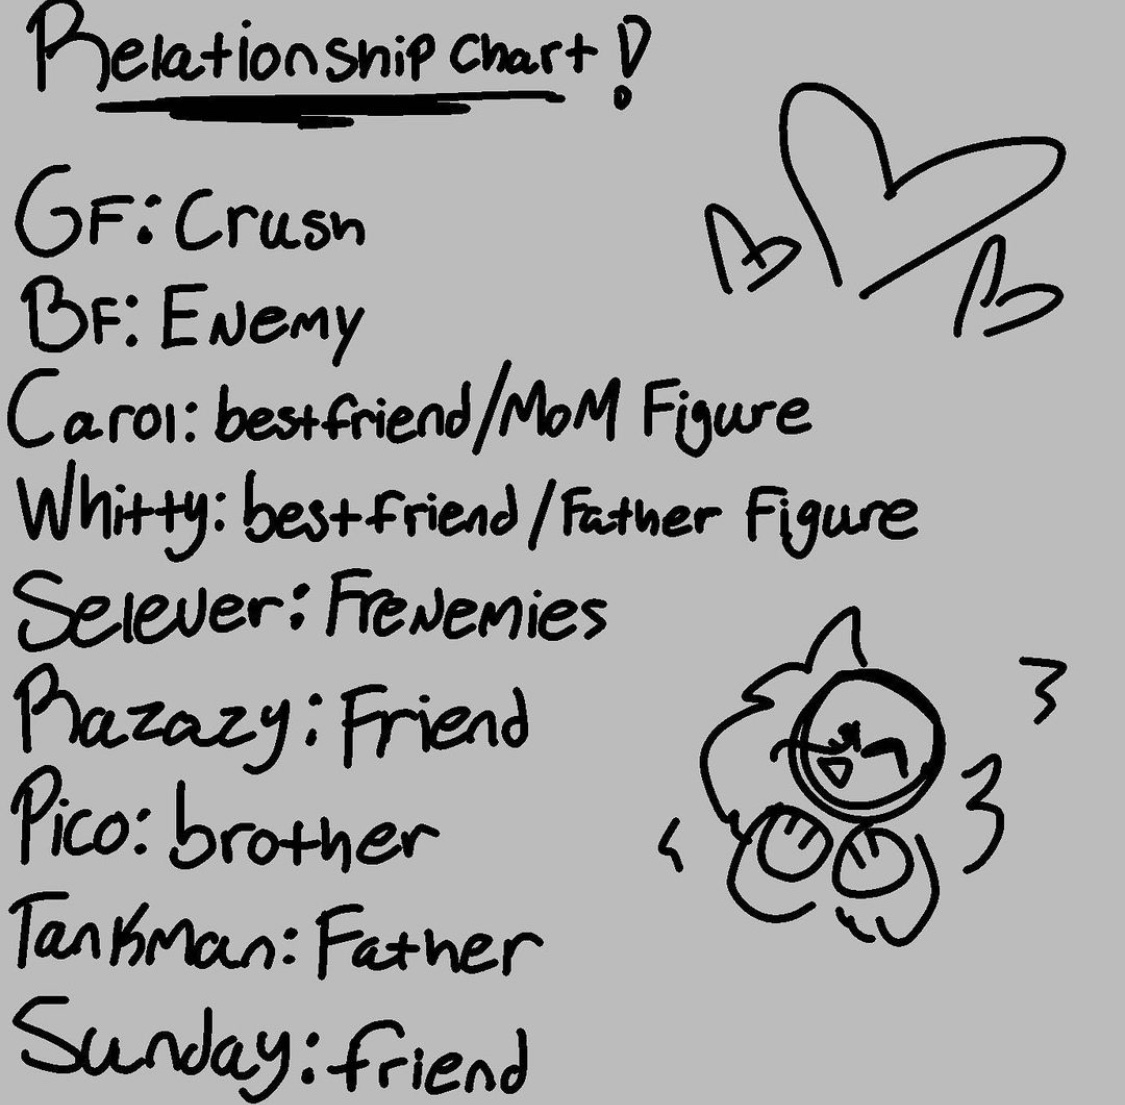 Relationship Chart!
GF: Crush
BF: Enemy
Carol: bestfriend/MoM Figure
Whitty: bestfriend/Father Figure
Selever: Frenemies
Razazy: Friend
Pico: brother
Tankman: Father
Sunday: friend